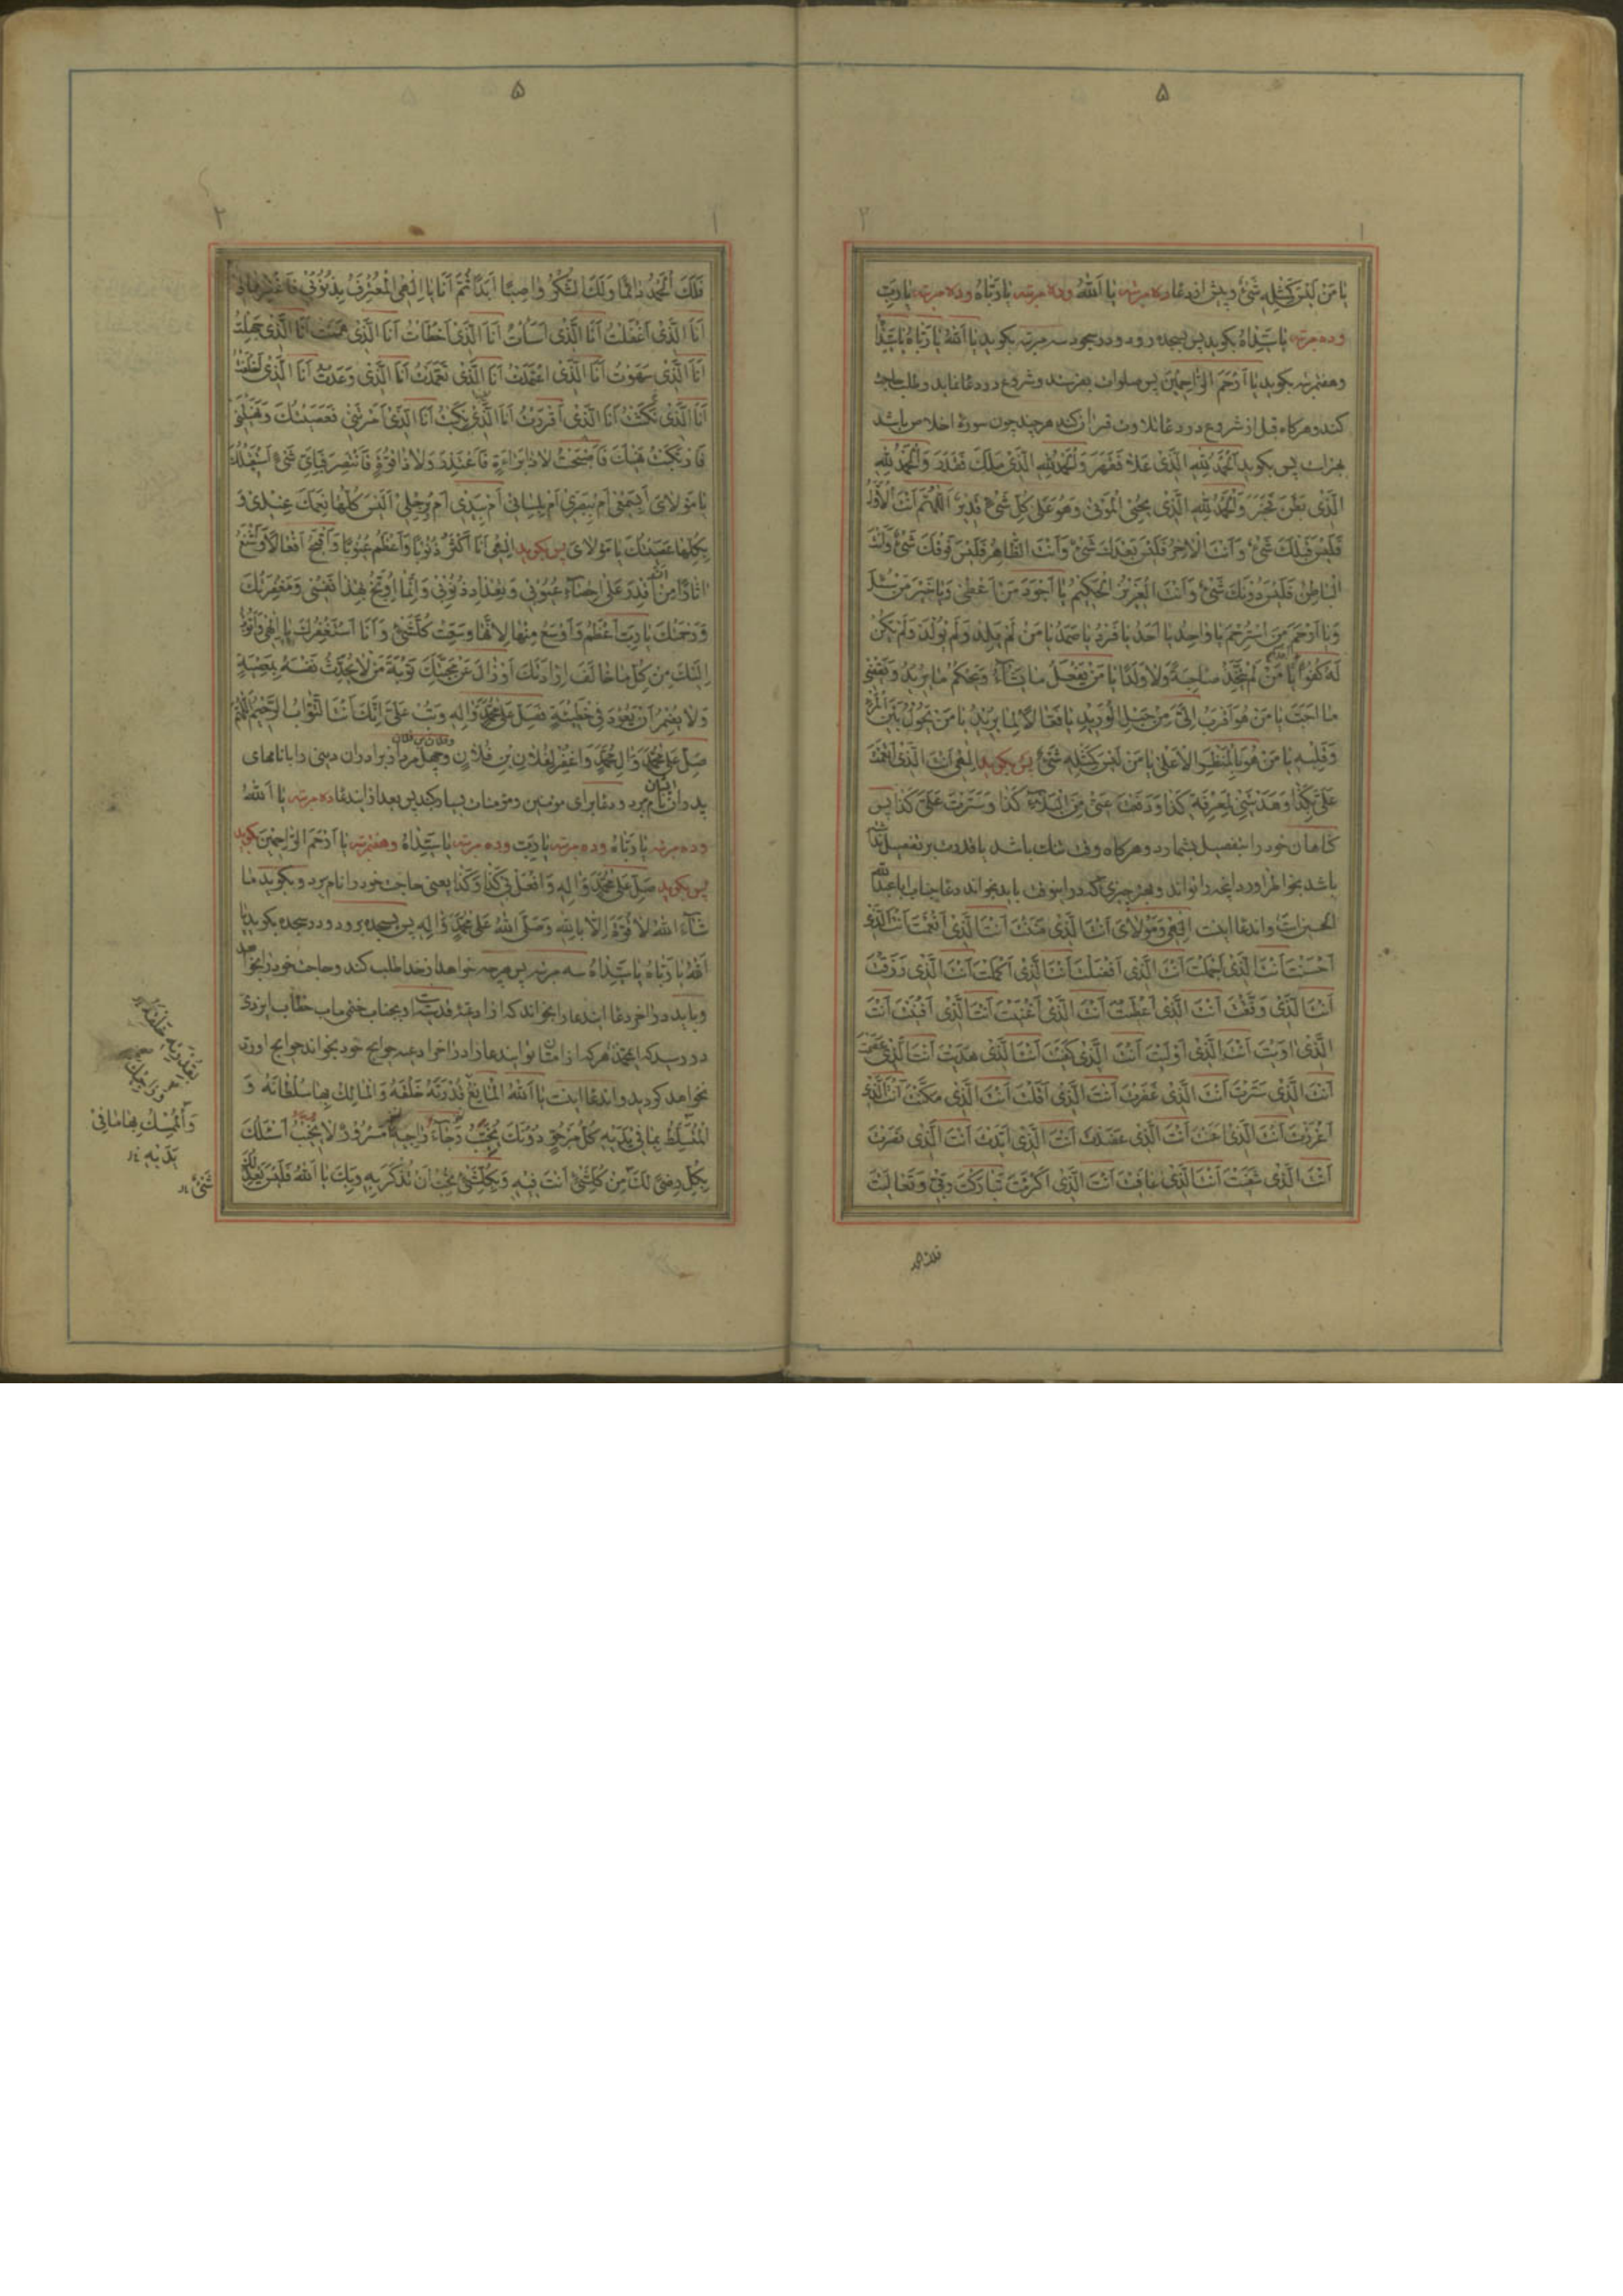 ۵
یا من لیس کمثله شئ و پیش از دعا ده مرتبه یا الله و ده مرتبه یا رباه و ده مرتبه یا رب
و ده مرتبه یا سیداه بکوید پس بسجده رود و در سجود سه مرتبه بکوید یا الله یا رباه یا سیداه
و هفتمرتبه بکوید یا ارحم الراحمین پس صلوات بفرستد و شروع در دعا نماید و طلب حاجت
کند و هرکاه قبل از شروع در دعا تلاوت قران کند هرچند چون سورۀ اخلاص باشد
بهتراست پس بکوید الحمد لله الذی علا فقهر و الحمد لله الذی ملک فقدر و الحمد لله
الذی بطن فخبر و الحمد لله الذی یحیی الموتی و هو علی کل شئ قدیر اللهم انت الاول
فلیس قبلک شئ و انت الاخر فلیس بعدک شئ و انت الظاهر فلیس فوقک شئ و انت
الباطن فلیس دونک شئ و انت العزیز الحکیم یا اجود من اعطی و یا خیر من سئل
و یا ارحم من استرحم یا واحد یا احد یا فرد یا صمد یا من لم یلد و لم یولد و لم یکن
له کفوا احد یا من لم یتخذ صاحبة و لا ولدا یا من یفعل ما یشاء و یحکم ما یرید و یقضی
ما احب یا من هو اقرب الی من حبل الورید یا فعالا لما یرید یا من یحول بین المرء
و قلبه یا من هو بالمنظر الاعلی یا من لیس کمثله شئ پس بکوید الهی انت الذی انعمت
علی بکذا و هدیتنی لمعرفة کذا و دفعت عنی من البلاء کذا و سترت علی کذا پس
کناهان خود را بتفصیل بشمارد و هرکاه وقت تنک باشد یا قدرت بر تفصیل نداشته
باشد بخواطر اورد انچه را تواند و بهتر چیزی که در اینوقت باید بخواند دعا جناب ابا عبد الله
الحسین است و اندعا اینست الهی و مولای انت الذی مننت انت الذی انعمت انت الذی
احسنت انت الذی اجملت انت الذی افضلت انت الذی اکملت انت الذی رزقت
انت الذی وفقت انت الذی اعطیت انت الذی اغنیت انت الذی اقنیت انت
الذی اویت انت الذی اولیت انت الذی کفیت انت الذی هدیت انت الذی عصمت
انت الذی سترت انت الذی غفرت انت الذی اقلت انت الذی مکنت انت الذی
اعززت انت الذی اعنت انت الذی عضدت انت الذی ایدت انت الذی نصرت
انت الذی شفیت انت الذی عافیت انت الذی اکرمت تبارکت ربی و تعالیت
فلک الحمد
۵
فلک الحمد دائما و لک الشکر واصبا ابدا ثم انا یا الهی المعترف بذنوبی فاغفرها لی
انا الذی اغفلت انا الذی اسأت انا الذی اخطأت انا الذی هممت انا الذی جهلت
انا الذی سهوت انا الذی اعتمدت انا الذی تعمدت انا الذی وعدت انا الذی اخلفت
انا الذی نکثت انا الذی اقررت انا الذی انا الذی امرتنی فعصیتک و نهیتنی
فارتکبت نهیک فاصبحت لا ذا براءة فاعتذر و لا ذا قوة فانتصر فبای شئ استقبلک
یا مولای ابسمعی ام ببصری ام بلسانی ام بیدی ام برجلی الیس کلها نعمک عندی و
بکلها عصیتک یا مولای پس بکوید الهی انا اکثر ذنوبا و اعظم عیوبا و اقبح افعالا و اشنع
اثارا من ان اقدر علی احصاء عیوبی و تعداد ذنوبی و انما اوبخ بهذا نفسی و مغفرتک
و رحمتک یا رب اعظم و اوسع منها لانها وسعت کل شئ و انا استغفرک یا الهی و اتوب
الیک من کل ما خالف ارادتک او زال عن محبتک توبة من لا یحدث نفسه بمعصیة
و لا یضمر ان یعود فی خطیئة فصل علی محمد و اله و تب علی انک انت التواب الرحیم اللهم
صل علی محمد و ال محمد و اغفر لفلان بن فلان و فلان بن فلان و چهل مرد از برادران دینی را با نامهای
پدران ایشان نام برد و دعا برای مومنین و مؤمنات بسیار کند پس بعد از اندعا ده مرتبه یا الله
و ده مرتبه یا رباه و ده مرتبه یا رب و ده مرتبه یا سیداه و هفتمرتبه یا ارحم الراحمین بکوید
پس بکوید صل علی محمد و اله و افعل بی کذا و کذا یعنی حاجت خود را نام برد و بکوید ما
شاء الله لا قوة الا بالله و صلی الله علی محمد و اله پس بسجده برود و در سجده بکوید یا
الله یا رباه یا سیداه سه مرتبه پس هرچه خواهد از خدا طلب کند و حاجت خود را بخواهد
و باید در اخر دعا اینده را بخواند که از ادعیۀ قدسیه است بجناب ختمی ماب خطاب ایزدی
در رسید که ایمحمد هرکه از امتان تو ایندعا را در اخر ادعیه حوایج خود بخواند حوایج او رد
نخواهد کردید و اندعا اینست یا الله المانع قدرته خلقه و المالک بها سلطانه و
المتسلط بما فی یدیه کل مرجو دونک یخیب رجاء راجیه مسرور لا یخیب اسئلک
بکل رضی لک من کل شئ انت فیه و بکل شئ تحب ان تذکر به و بک یا الله فلیس یعدلک
شئ
بقدرته خلقه
بما فی
یدیه